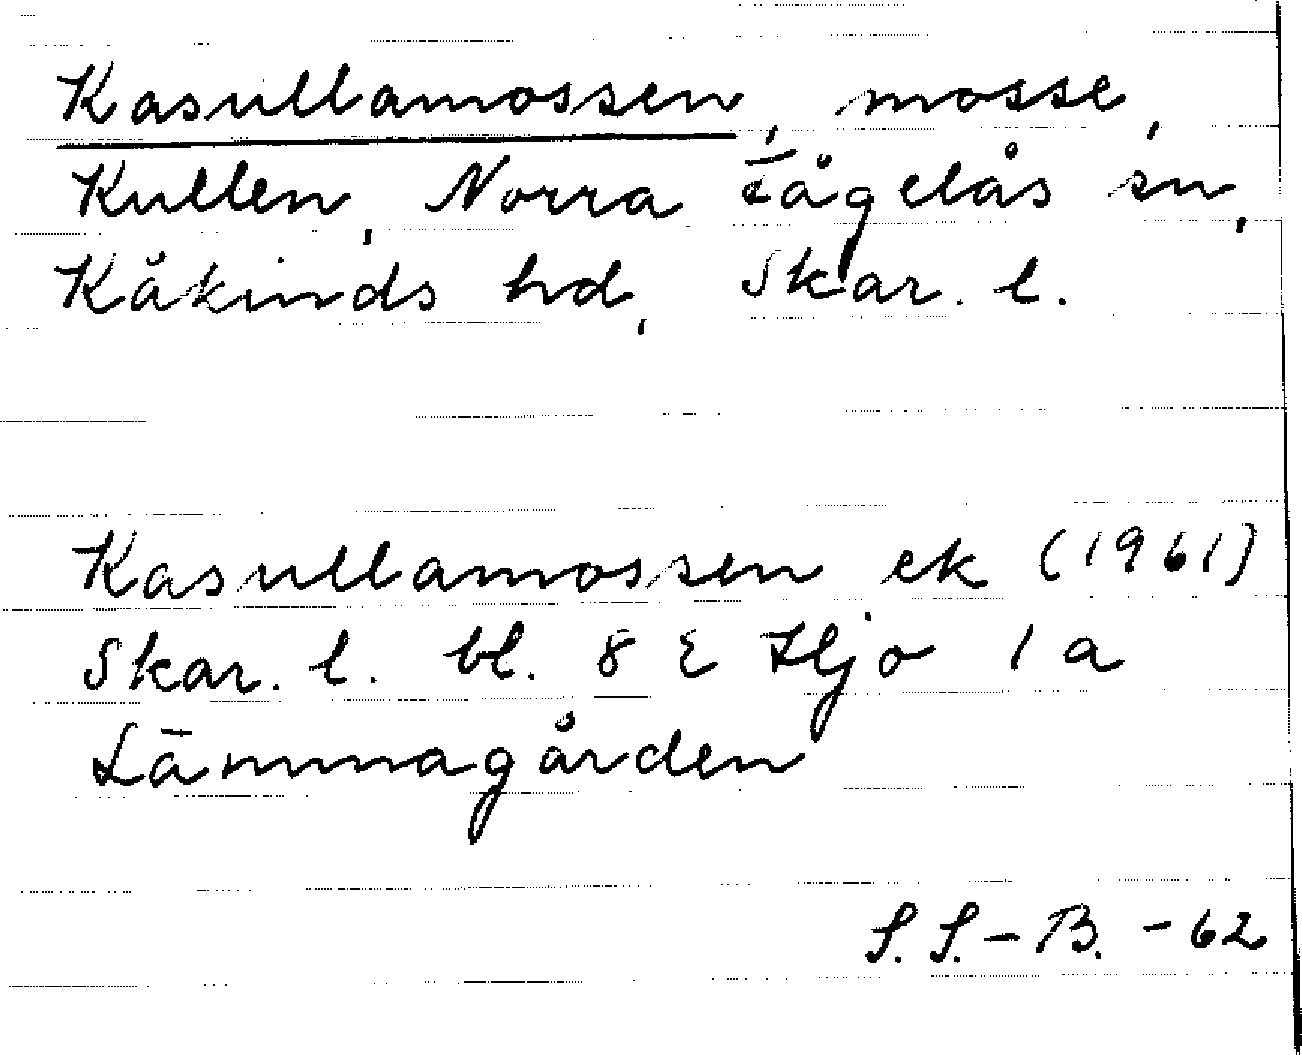 Kasullamossen, mosse,
Kullen, Norra Fågelås sn,
Kåkinds hd, Skar. l.
Kasullamossen ek (1961)
Skar. l. bl. 8 E Hjo 1 a
Lämmagården
S. S.-B. -62